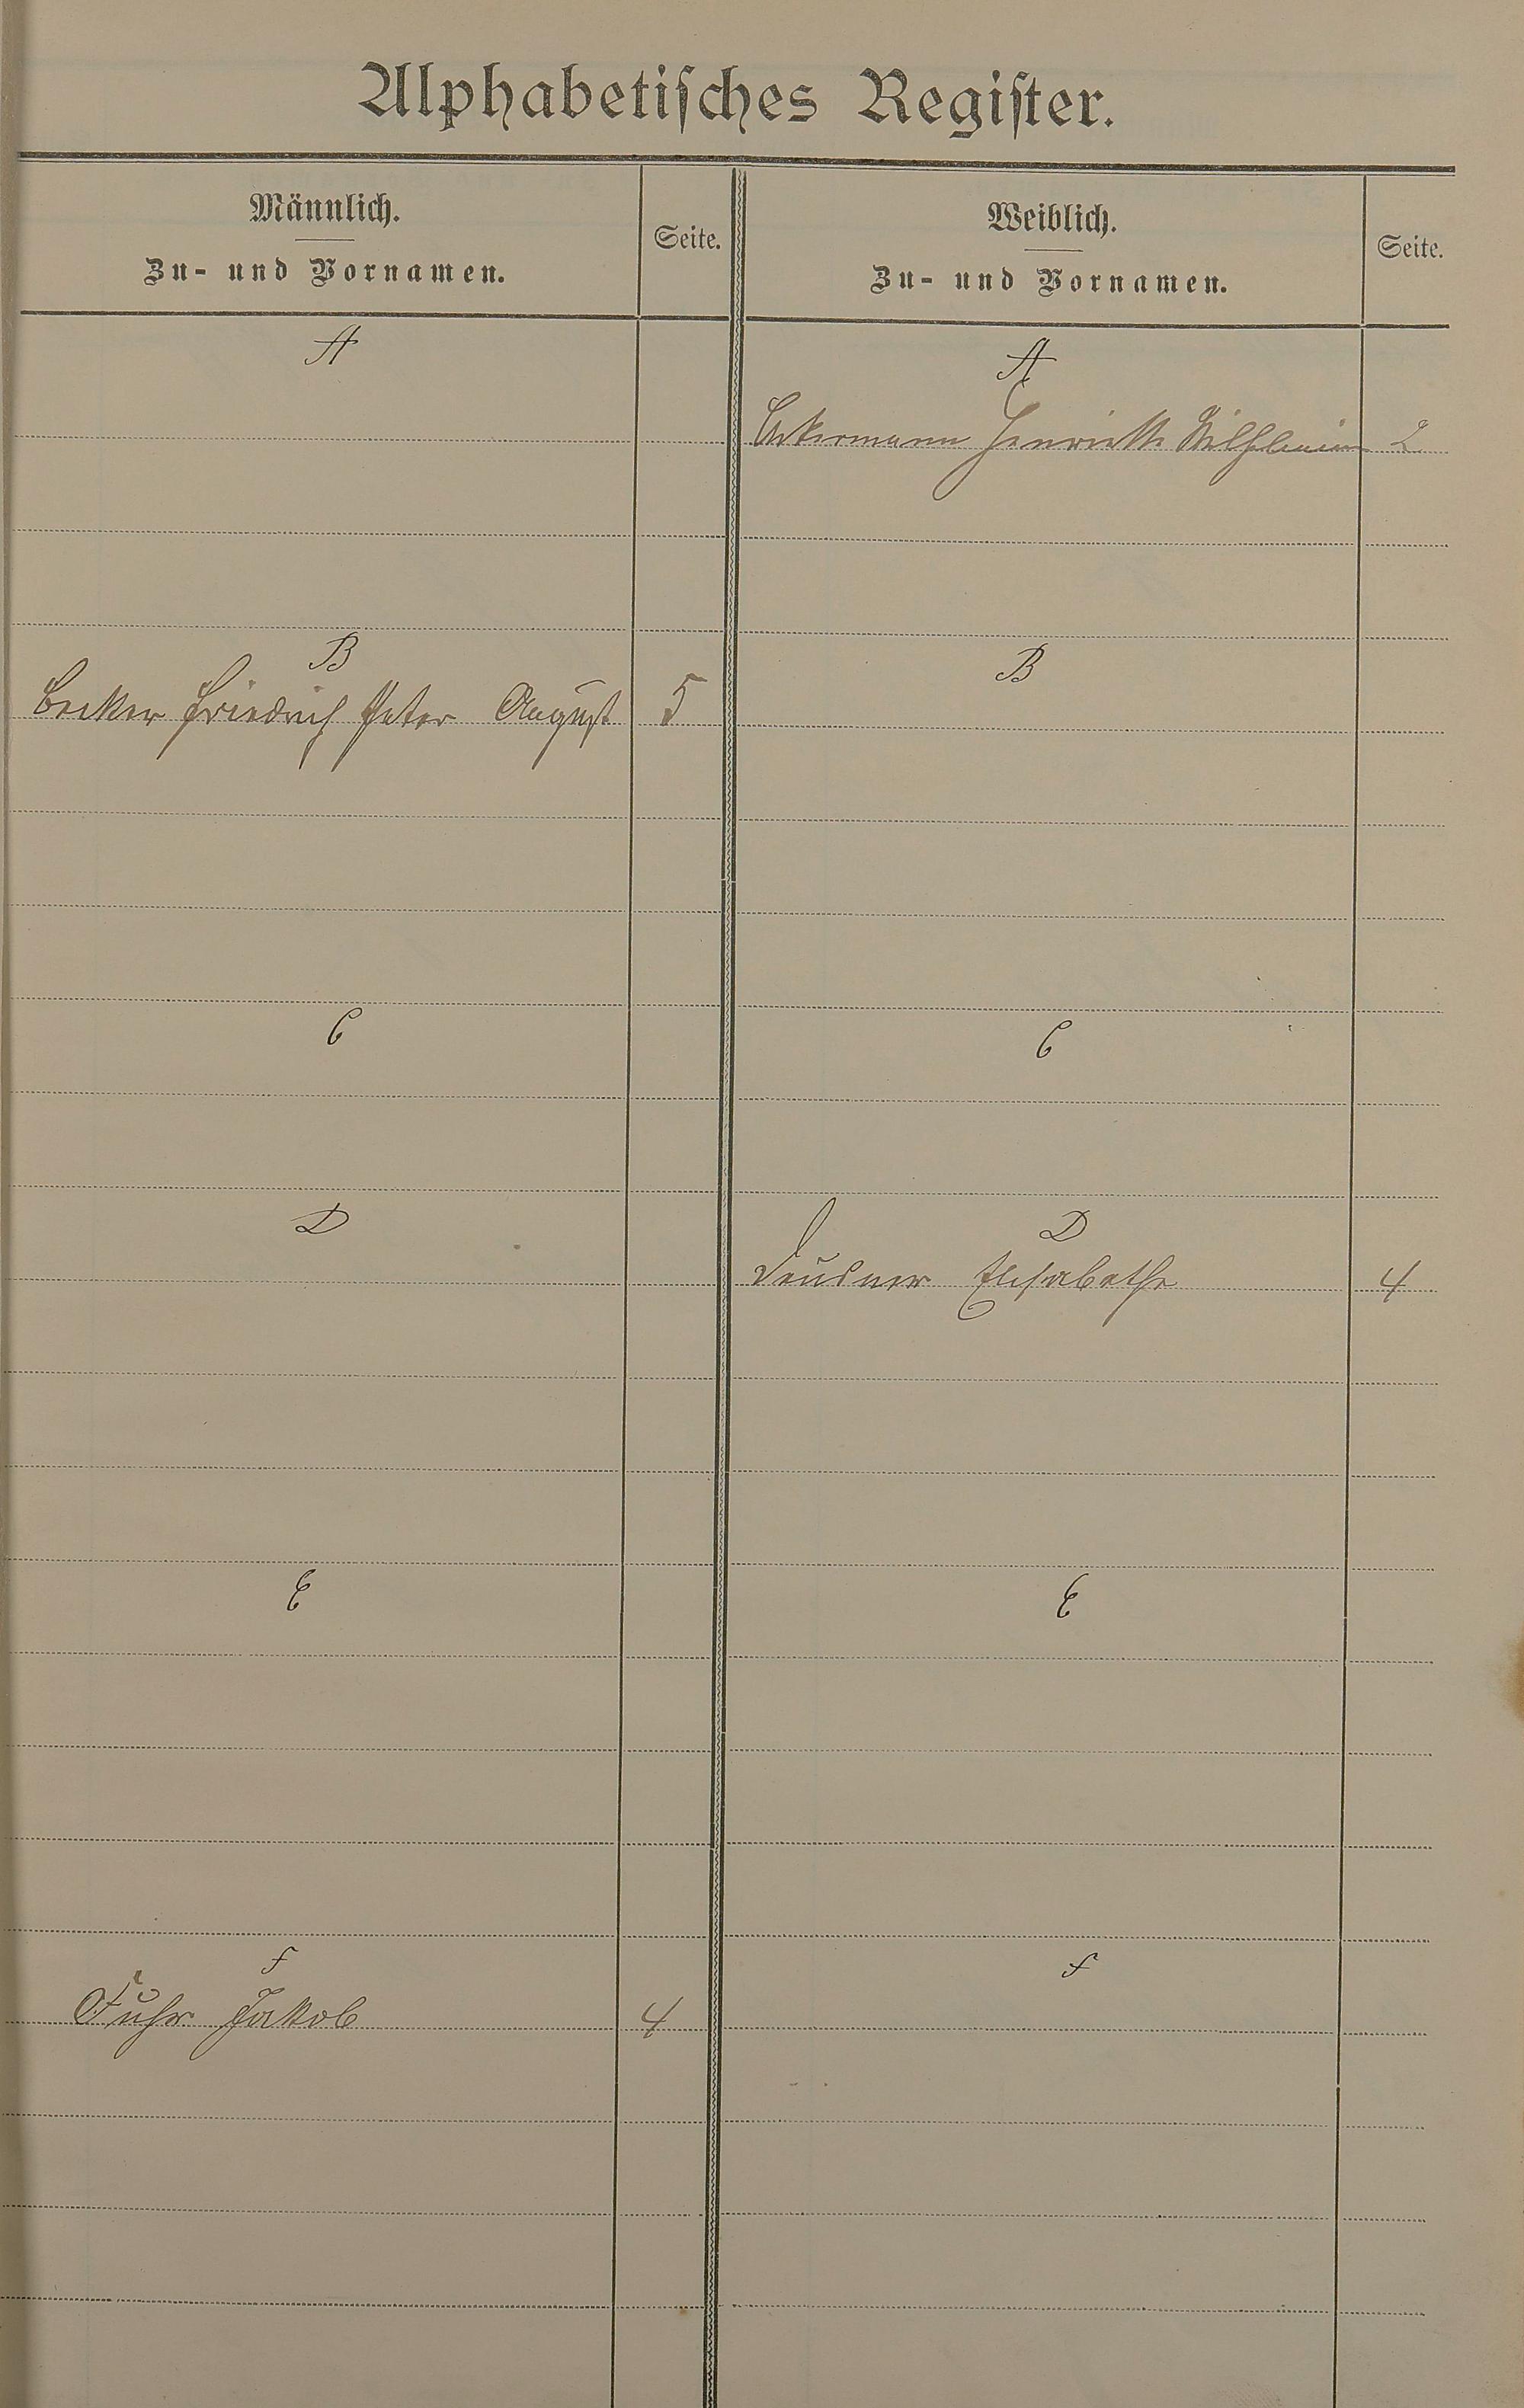 Alphabetisches Register.
Männlich.
Zu- und Vornamen.
Seite.
Weiblich.
Zu- und Vornamen.
Seite.
A
A
Ackermann Henriette Wilhelmine 2
B
B
Becker Friedrich Peter August 5
C
C
D
D
Deusner Elisabethe 4
E
E
F
F
Fuhr Jakob 4